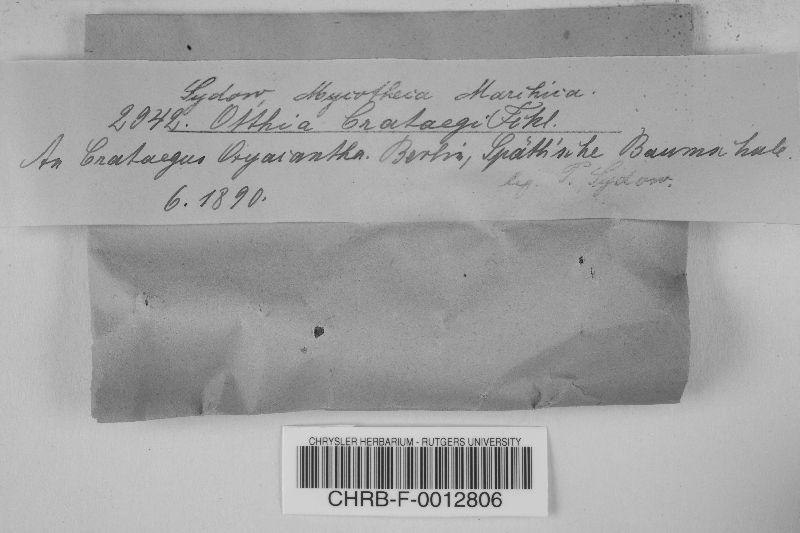 Sydow, Mycotheca Marchica.
2942. Otthia Crataegi Fckl.
An Crataegus Oxyacantha. Berlin, Späth'sche Baumschule.
leg. P. Sydow.
6. 1890.
CHRYSLER HERBARIUM - RUTGERS UNIVERSITY
CHRB-F-0012806